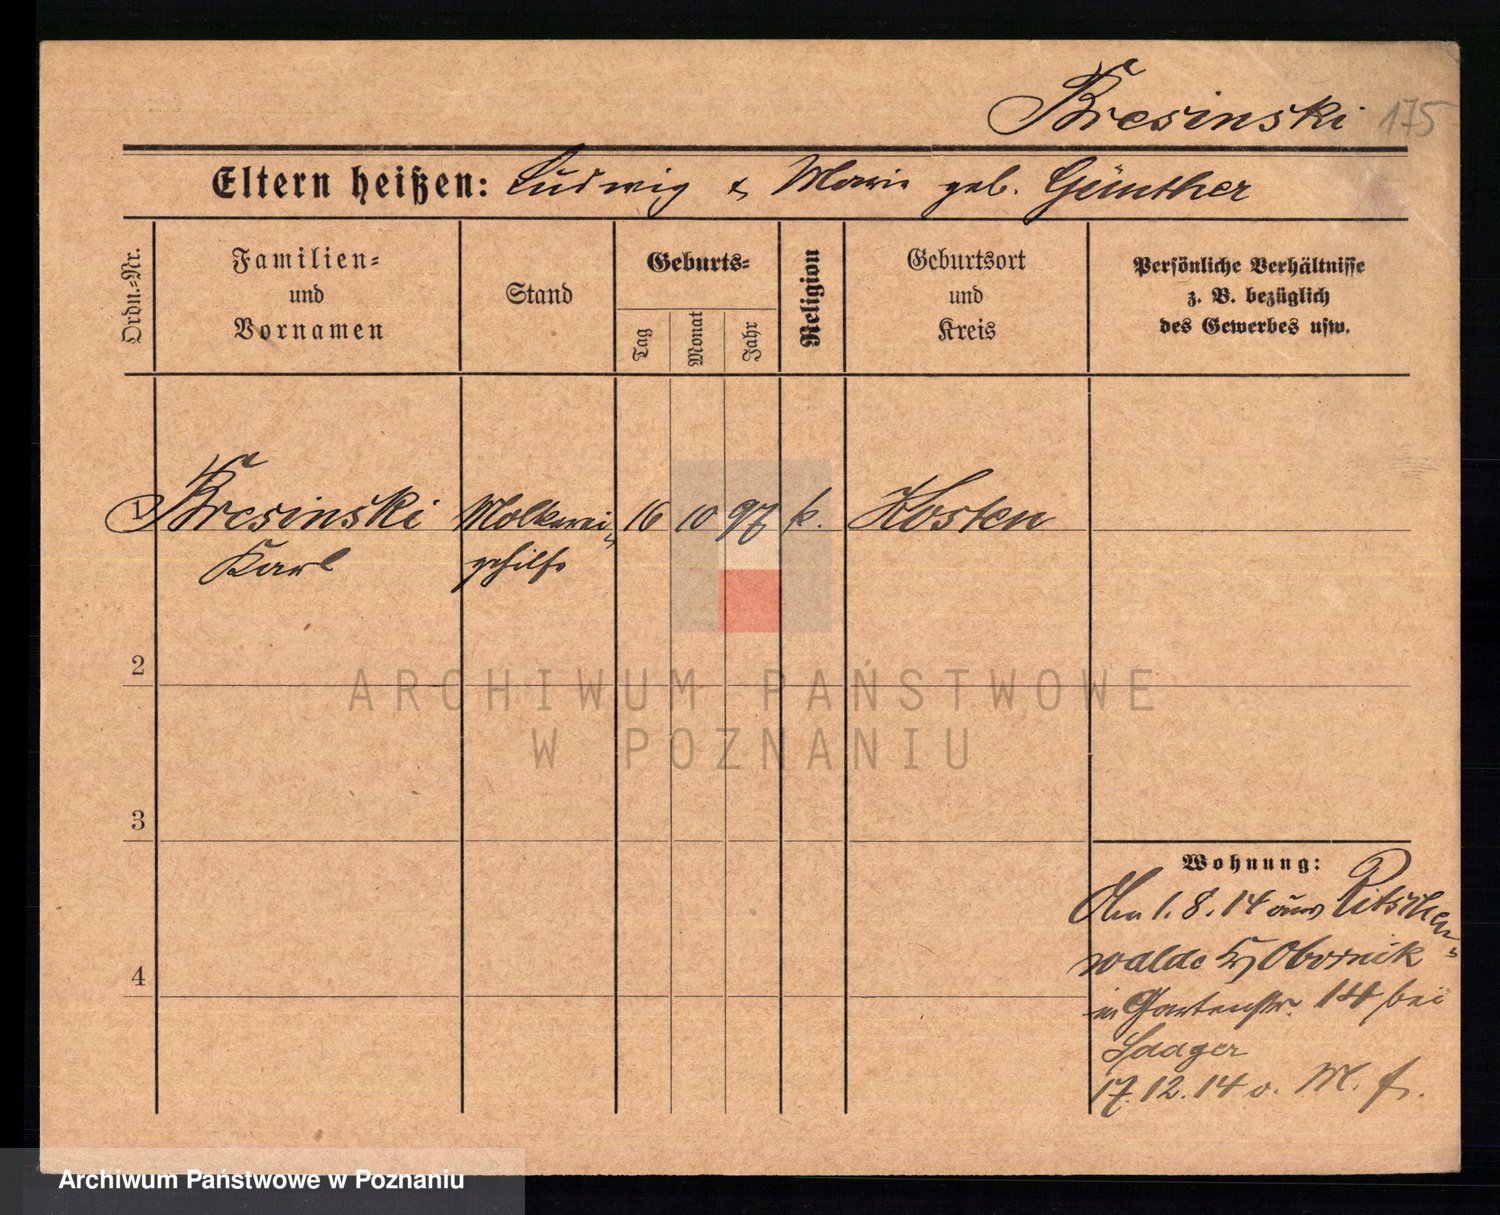 Bresinski 175
Eltern heißen: Ludwig & Marie geb. Günther
Ordn.-Nr.
Familien-
und
Vornamen
Stand
Geburts-
Tag
Monat
Jahr
Religion
Geburtsort
und
Kreis
Persönliche Verhältnisse
z. B. bezüglich
des Gewerbes usw.
1 Bresinski Molkerei- 16 10 97 k. Kosten
Karl gehilfe
2
ARCHIWUM PAŃSTWOWE
W POZNANIU
3
Wohnung:
1. 8. 14 aus Ritschen-
walde Kr Obornik
in Gartenstr. 14 bei
4
17. 12. 14 o. M. f.
Archiwum Państwowe w Poznaniu